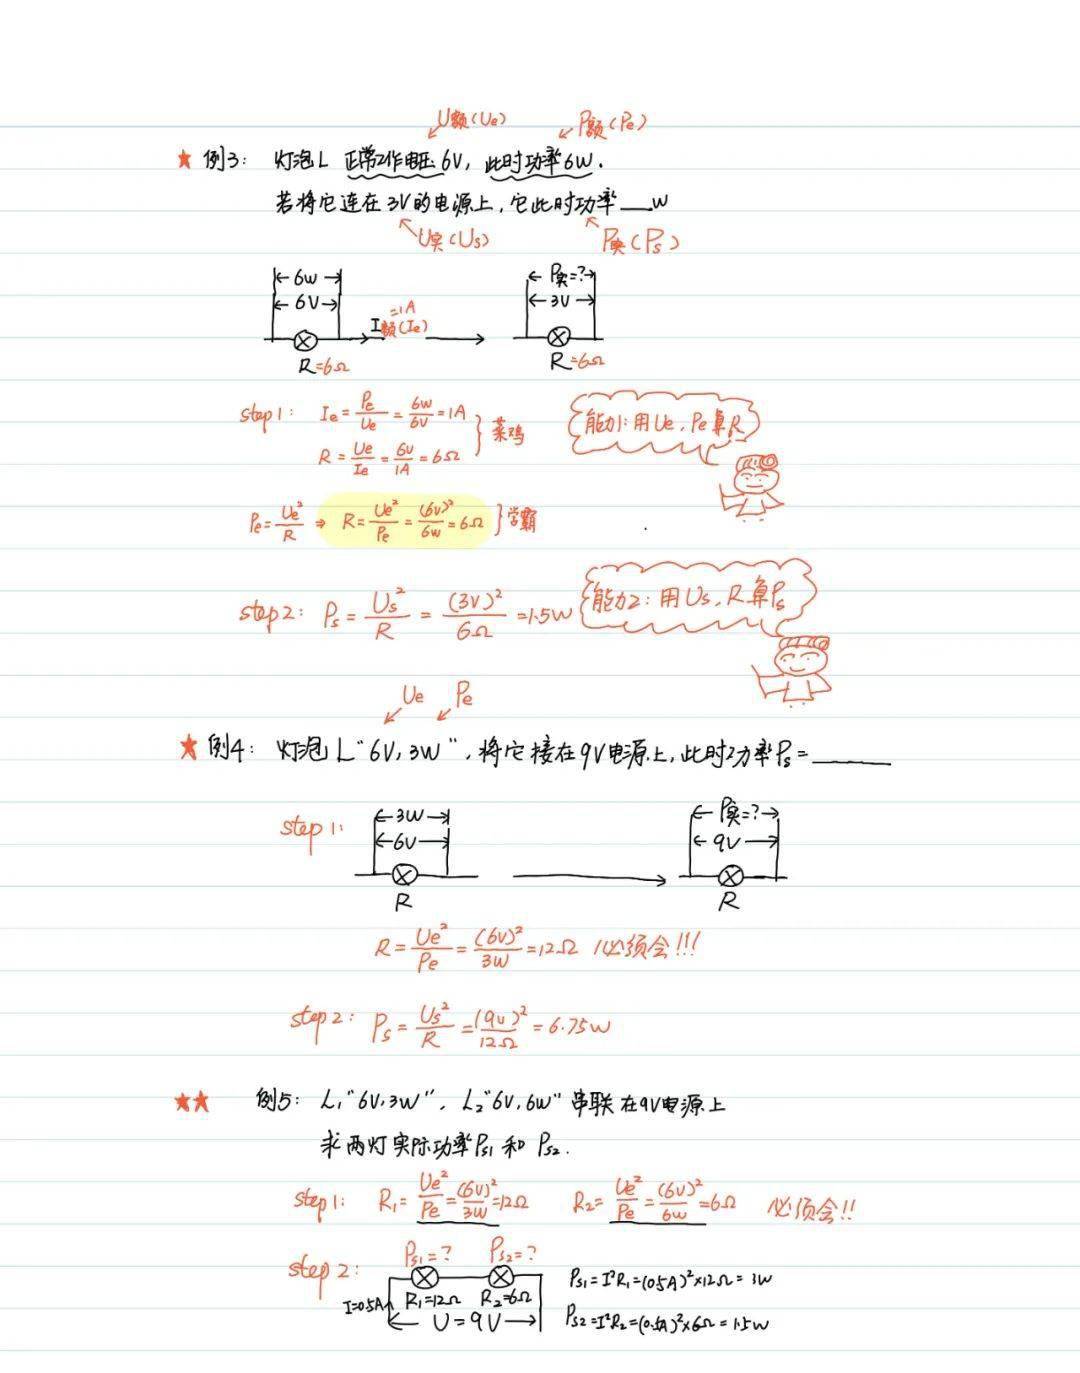 U额(Ue) P额(Pe)
★ 例3: 灯泡L 正常工作电压6V, 此时功率6W.
若将它连在3V的电源上, 它此时功率___W
U实(Us) P实(Ps)
6W P实=?
6V 3V
=1A
I额(Ie)
R=6Ω R=6Ω
step1: Ie=Pe/Ue=6W/6V=1A
R=Ue/Ie=6V/1A=6Ω } 菜鸡
能力1:用Ue, Pe算R
Pe=Ue²/R ⇒ R=Ue²/Pe=(6V)²/6W=6Ω } 学霸
step2: Ps=Us²/R=(3V)²/6Ω=1.5W
能力2:用Us, R算Ps
Ue Pe
★ 例4: 灯泡L"6V,3W", 将它接在9V电源上, 此时功率Ps=______
step1:
3W P实=?
6V 9V
R R
R=Ue²/Pe=(6V)²/3W=12Ω 必须会!!!
step2: Ps=Us²/R=(9V)²/12Ω=6.75W
★★ 例5: L₁"6V,3W", L₂"6V,6W"串联在9V电源上
求两灯实际功率Ps1和Ps2.
step1: R₁=Ue²/Pe=(6V)²/3W=12Ω R₂=Ue²/Pe=(6V)²/6W=6Ω 必须会!!
step2: Ps1=? Ps2=?
I=0.5A R₁=12Ω R₂=6Ω
U=9V
Ps1=I²R₁=(0.5A)²×12Ω=3W
Ps2=I²R₂=(0.5A)²×6Ω=1.5W